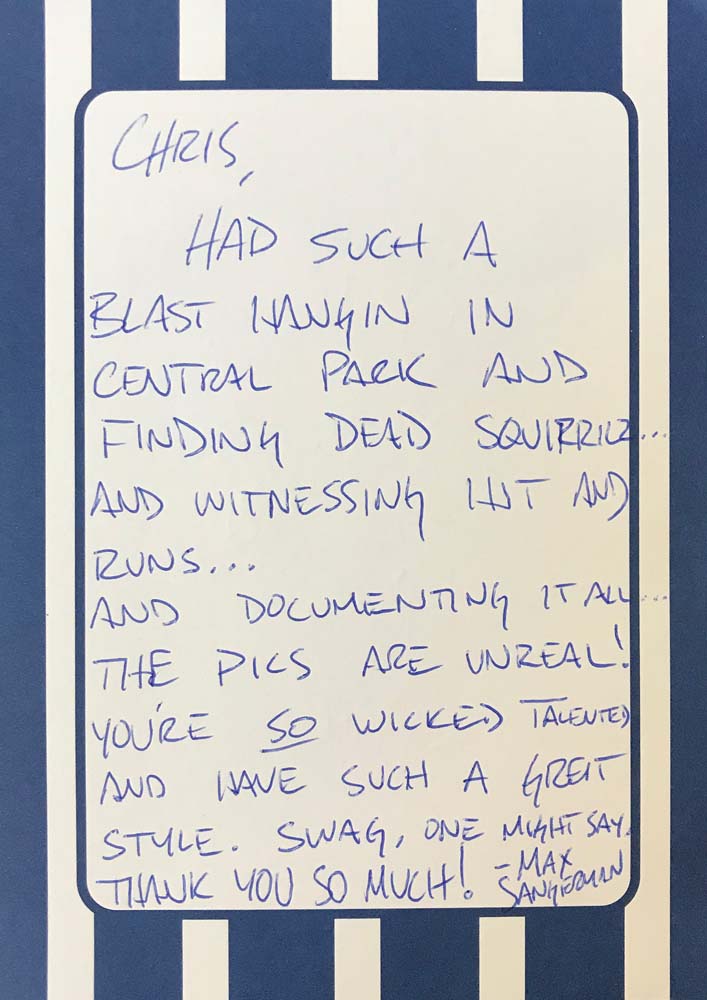 CHRIS,
HAD SUCH A
BLAST HANGIN IN
CENTRAL PARK AND
FINDING DEAD SQUIRRILZ...
AND WITNESSING HIT AND
RUNS...
AND DOCUMENTING IT ALL...
THE PICS ARE UNREAL!
YOU'RE SO WICKED TALENTED
AND HAVE SUCH A GREAT
STYLE. SWAG, ONE MIGHT SAY.
THANK YOU SO MUCH! -MAX
SANGERMAN